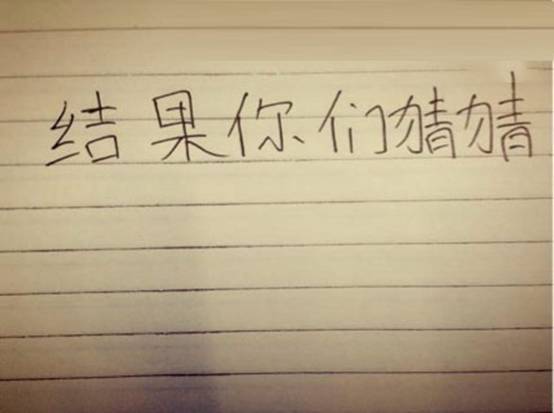 结果你们猜猜